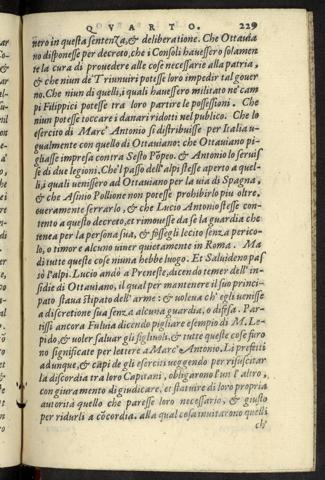 QVARTO. 229
nero in questa sentenza, & deliberatione. Che Ottauia
no disponesse per decreto, che i Consoli hauessero solamen
te la cura di prouedere alle cose necessarie alla patria,
& che niun de Triunuiri potesse loro impedir tal gouer
no. Che niun di quelli, i quali hauessero militato ne' cam
pi Filippici potesse tra loro partire le possessioni. Che
niun potesse toccare i danari ridotti nel publico. Che lo
esercito di Marc' Antonio si distribuisse per Italia u-
gualmente con quello di Ottauiano: che Ottauiano pi-
gliasse impresa contra Sesto Põpeo. & Antonio lo seruis
se di due legioni. Che'l passo dell'alpi stesse aperto a quel-
li, i quali uenissero ad Ottauiano per la uia di Spagna,
& che Asinio Pollione non potesse prohibirlo piu oltre,
eueramente serrarlo, & che Lucio Antonio stesse con-
tento a questo decreto, et rimouesse da se la guardia che
tenea per la persona sua, & fossegli lecito senza perico-
lo, o timore alcuno uiuer quietamente in Roma. Ma
di tutte queste cose niuna hebbe luogo. Et Saluideno pas
sò l'alpi. Lucio andò a Preneste, dicendo temer dell'in-
sidie di Ottauiano, il qual per mantenere il suo princi-
pato staua stipato dell'arme: & uolea ch'egli uenisse
a discretione sua senza alcuna guardia, o difesa. Par-
tissi ancora Fuluia dicendo pigliare esempio di M. Le-
pido, & uoler saluar gli figliuoli, & tutte queste cose furo
no significate per lettere a Marc' Antonio. Li prefetti
adunque, & capi de gli eserciti ueggendo per risuscitar
la discordia tra loro Capitani, obligarono l'un l'altro,
con giuramento di giudicare, et statuire di loro propria
autorità quello che paresse loro necessario, & giusto
per ridurli a cõcordia. alla qual cosa inuitarono quelli
ch'